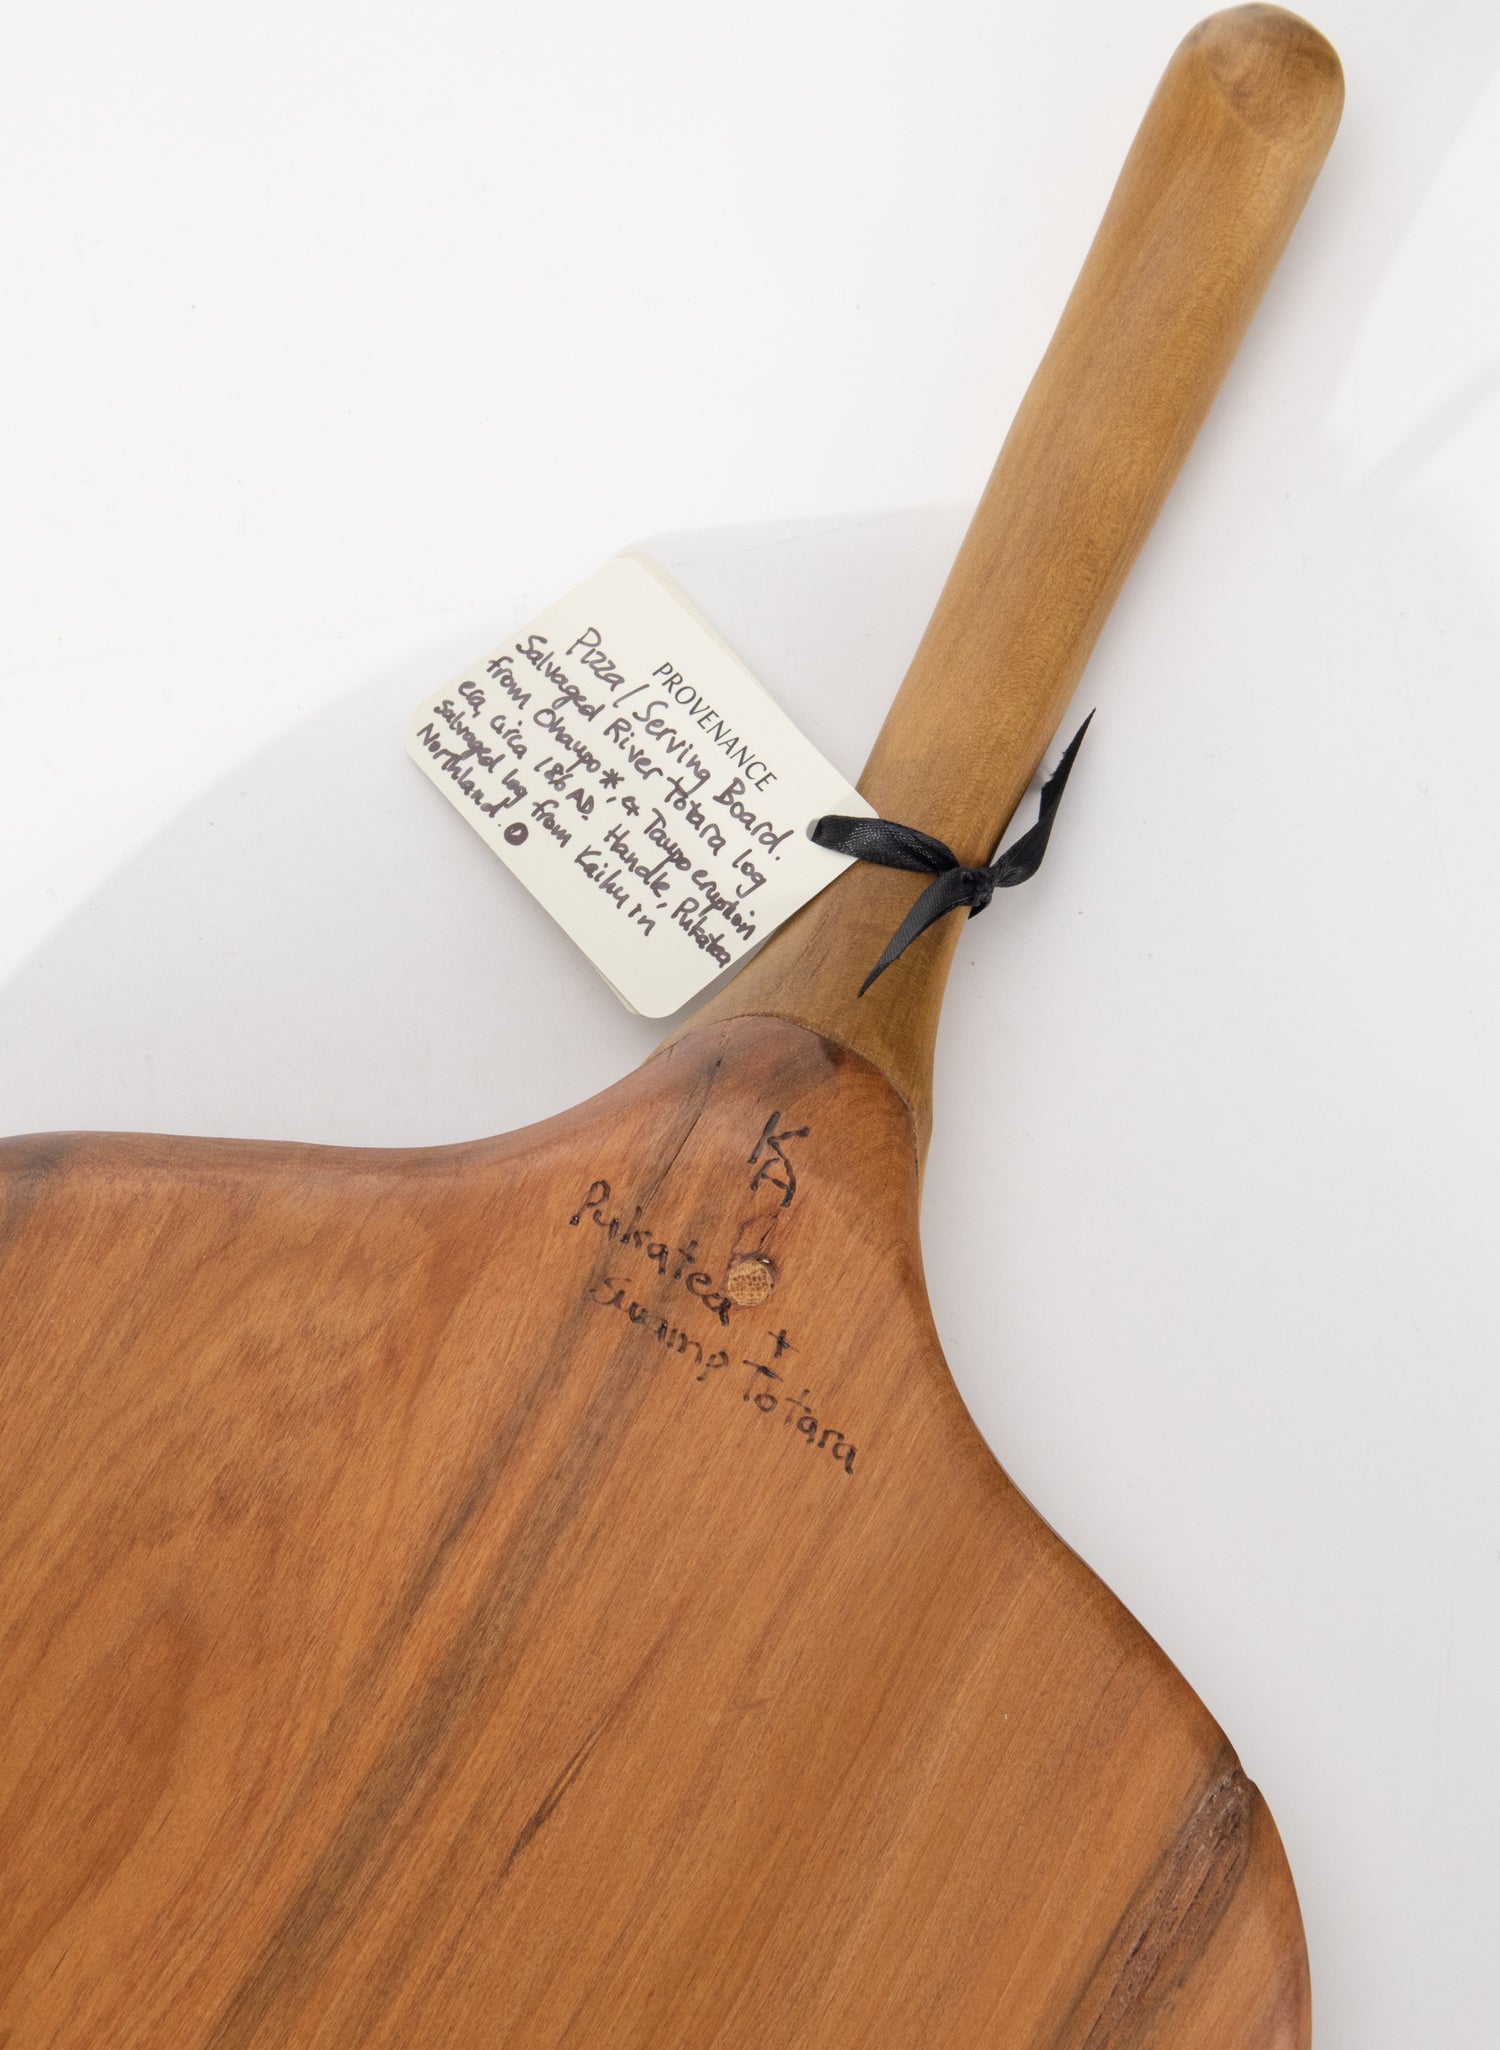 PROVENANCE
Pizza / Serving Board.
Salvaged River totara log
from Ohaupo *, & Taupo eruption
era, circa 186 AD. Handle, Pukatea
Salvaged log from Kaihu in
Northland.
KA
Pukatea +
Swamp Totara